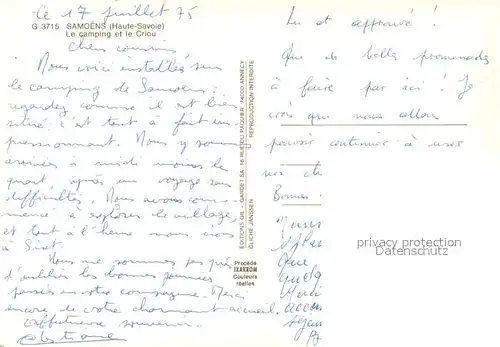 le 17 juillet 75
G 3715 SAMOËNS (Haute-Savoie)
Le camping et le Criou
Chers cousins
Nous voici installés sur
le camping de Samoëns;
regardez comme il est bien
situé: c'est tout à fait im-
pressionnant. Nous y sommes
arrivés à midi moins le
quart, après un voyage sans
difficultés. Nous avons com-
mencé à explorer le village,
et tout à l'heure nous irons
à Sixt.
Nous ne sommes pas près
d'oublier les bonnes journées
passées en votre compagnie. Merci
encore de votre charmant accueil.
Affectueux souvenir.
EDITIONS GIL - GARDET SA. 16 RUE DU PAQUIER 74000 ANNECY
CLICHÉ JANSSEN REPRODUCTION INTERDITE
Procédé
IXAKROM
Couleurs
réelles
Lu et approuvé!
Que de belles promenades
à faire par ici! Je
crois que nous allons
pouvoir continuer à user
nos
Bonnes
Nous
que
quelq
privacy protection
www.delcampe.net